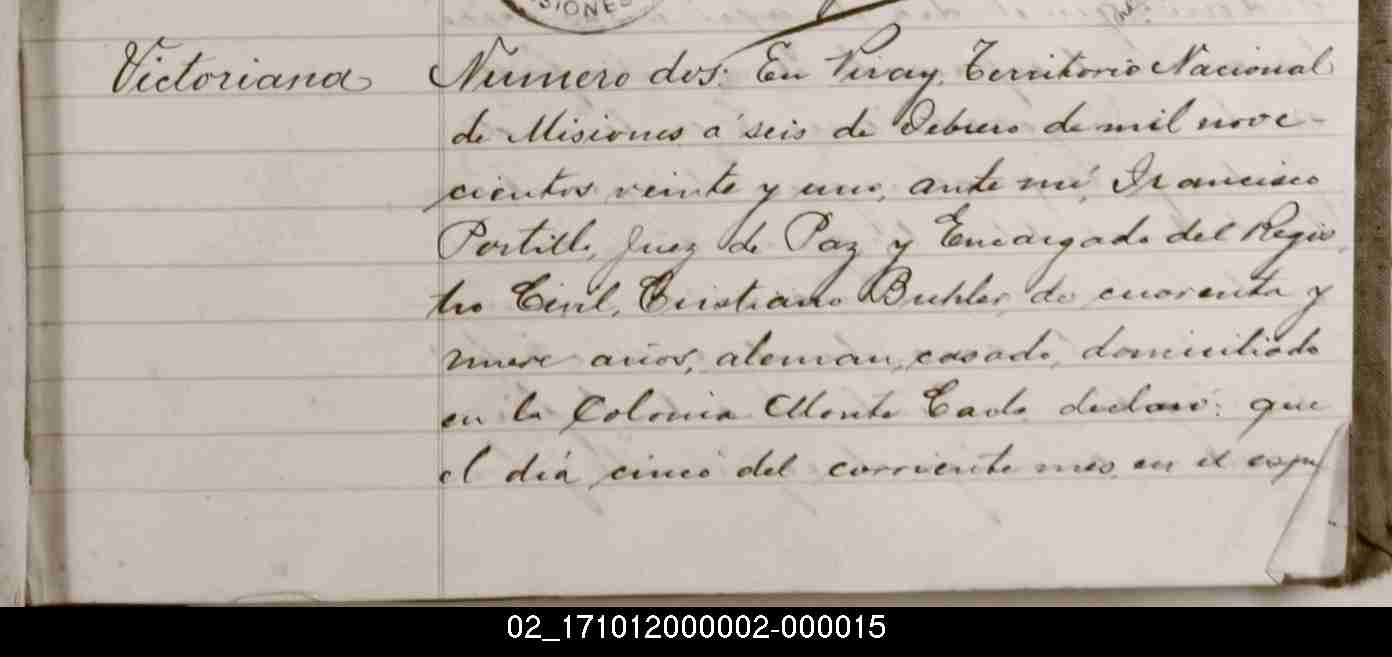 SIONES
Victoriana
Número dos: En Piray, Territorio Nacional
de Misiones á seis de Febrero de mil nove-
cientos veinte y uno, ante mí, Francisco
Portillo, Juez de Paz y Encargado del Regis
tro Civil, Cristiano Buhler, de cuarenta y
nueve años, aleman, casado, domiciliado
en la Colonia Monte Carlo declaró: que
el día cinco del corriente mes, en el
02_171012000002-000015